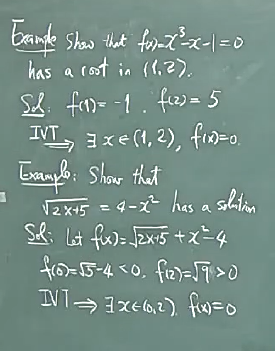 Example Show that f(x)=x³-x-1=0
has a root in (1,2).
Sol: f(1)=-1. f(2)=5
IVT ⟹ ∃ x∈(1,2), f(x)=0.
Example: Show that
√2x+5 = 4-x² has a solution
Sol: Let f(x)=√2x+5+x²-4
f(0)=√5-4<0. f(2)=√9>0
IVT ⟹ ∃x∈(0,2), f(x)=0